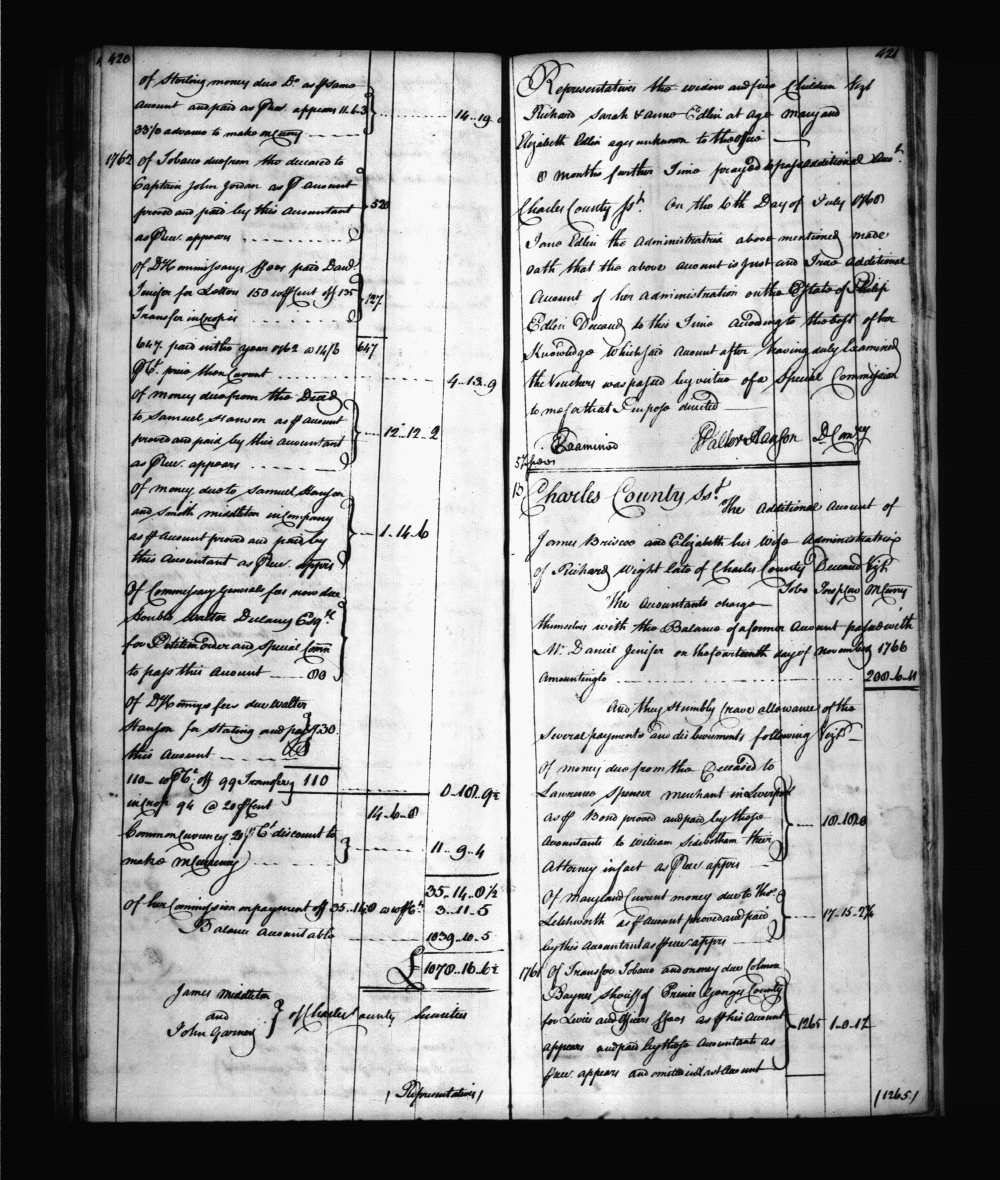 420
of Sterling money due Do as p same
Account and paid as p Rect. appears 11.4.3
33 1/3 advance to make m Curry
14..19..
1762 of Tobacco due from the deceased to
Captain John Jordan as p Account
proved and paid by this Accountant 526
as p Rect. appears
of D Commissarys ffees paid Danl.
Jenifer for Letters 150 p Cent off 135 127
Transfer in Crop is
647. paid in the year 1762 @ 14/6 647
p Ct. price then Current 4..13..9
of money due from the Deced
to Samuel Hanson as p Account 12..12..2
proved and paid by this Accountant
as p Rect. appears
Of money due to Samuel Hanson
and Smith Middleton in Company
as p Account proved and paid by 1..14..6
this Accountant as p Rect. appears
Of Commissary Generals fees now due
Honble Walter Dulany Esqr.
for Petition order and Special Comn
to pass this Account 80
Of D Comrys fees due Walter
Hanson for Stating and pass 30
this Account
110 off 99 Transfer 110
in Crop 94 @ 20 p Cent 0..18..9 1/2
14..6..8
Common Currency 20 p Ct discount to
make m Currency 11..9..4
35..14..8 1/2
of her Commission on payment off 35..14..8 3..11..5
Balance Accountable 1039..10..5
£ 1078..16..6 1/2
James Middleton
and of Charles County Securities
John Garner
(Representatives)
421
Representatives the widow and five Children Vizt
Richard Sarah & Anne Edlin at Age Mary and
Elizabeth Edlin ages unknown to the Office
8 months further Time prayed to pass additional Acct.
Charles County Sst. On the 6th Day of July 1768
Jane Edlin the Administratrix above mentioned made
oath that the above Account is Just and True additional
Account of her Administration on the Estate of Philip
Edlin Deceased to this Time According to the best of her
Knowledge Which said Account after having duly Examined
the Vouchers was passed by virtue of a Special Commission
to me for that Purpose directed
Examined Walter Hanson D Comry
13 Charles County Sst.
The Additional Account of
James Briscoe and Elizabeth his Wife Administratrix
of Richard Wight late of Charles County Deceased Vizt
Tobo Insp Cur M Curry
The Accountants charge
themselves with the Balance of a former Account passed with
Mr. Daniel Jenifer on the fourteenth day of November 1766
Amounting to 208..6..11
And they Humbly Crave allowance of the
Several payments and disbursments following Vizt
Of money due from the Deceased to
Lawrence Spencer Merchant in Liverpool
as p Bond proved and paid by these 18..18..8
Accountants to William Sidebotham their
Attorney in fact as p Rect. appears
Of Maryland Current money due to Thos.
Letchworth as p Account proved and paid 17..15..2 1/2
by this Accountant as p Rect. appears
1761 Of Transfer Tobacco and money due Colmore
Bayne Sheriff of Prince Georges County
for Levies and Officers ffees as p his Account 1265 1..0..1 1/2
appears and paid by these Accountants as
p Rect. appears and omitted in last Account
(1265)